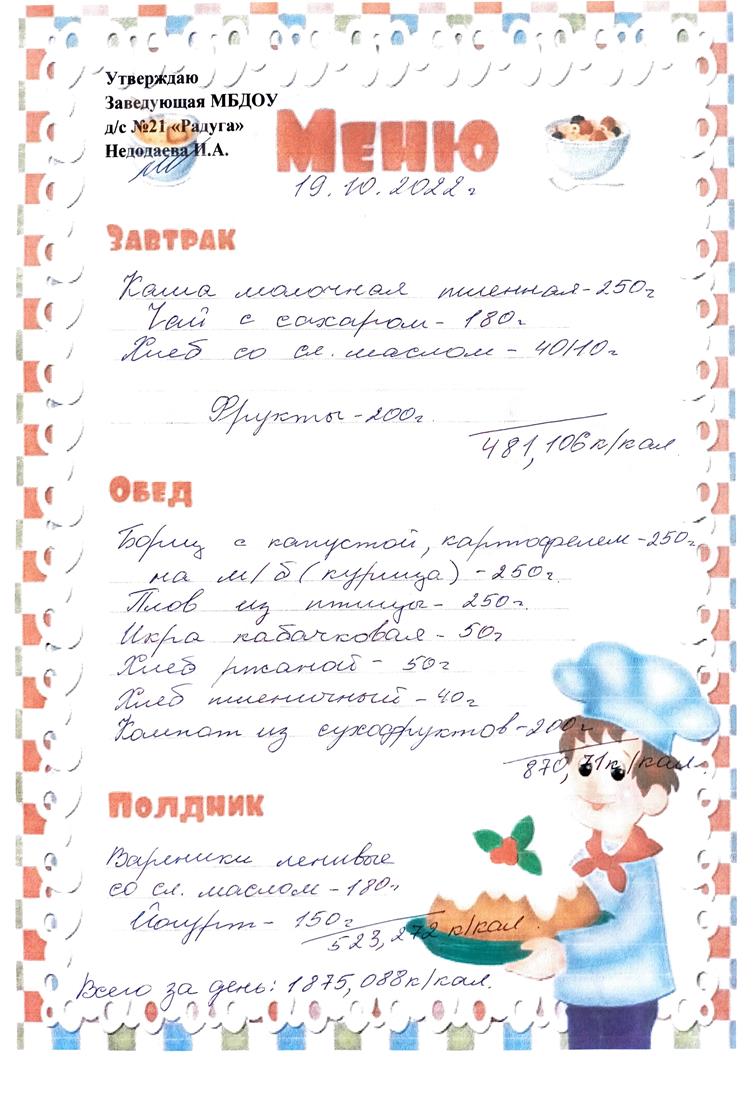 Утверждаю
Заведующая МБДОУ
д/с №21 «Радуга»
Недодаева И.А.
Меню
19.10.2022г
Завтрак
Каша молочная пшенная-250г
Чай с сахаром- 180г
Хлеб со сл. маслом - 40/10г
Фрукты-200г.
481,106к/кал
Обед
Борщ с капустой, картофелем-250г
на м/б (курица) -250г
Плов из птицы- 250г.
Икра кабачковая- 50г
Хлеб ржаной- 50г
Хлеб пшеничный-40г
Компот из сухофруктов-200г
870,71к/кал.
Полдник
Вареники ленивые
со сл. маслом-180г
Йогурт- 150г
523,272 к/кал
Всего за день: 1875,088к/кал.